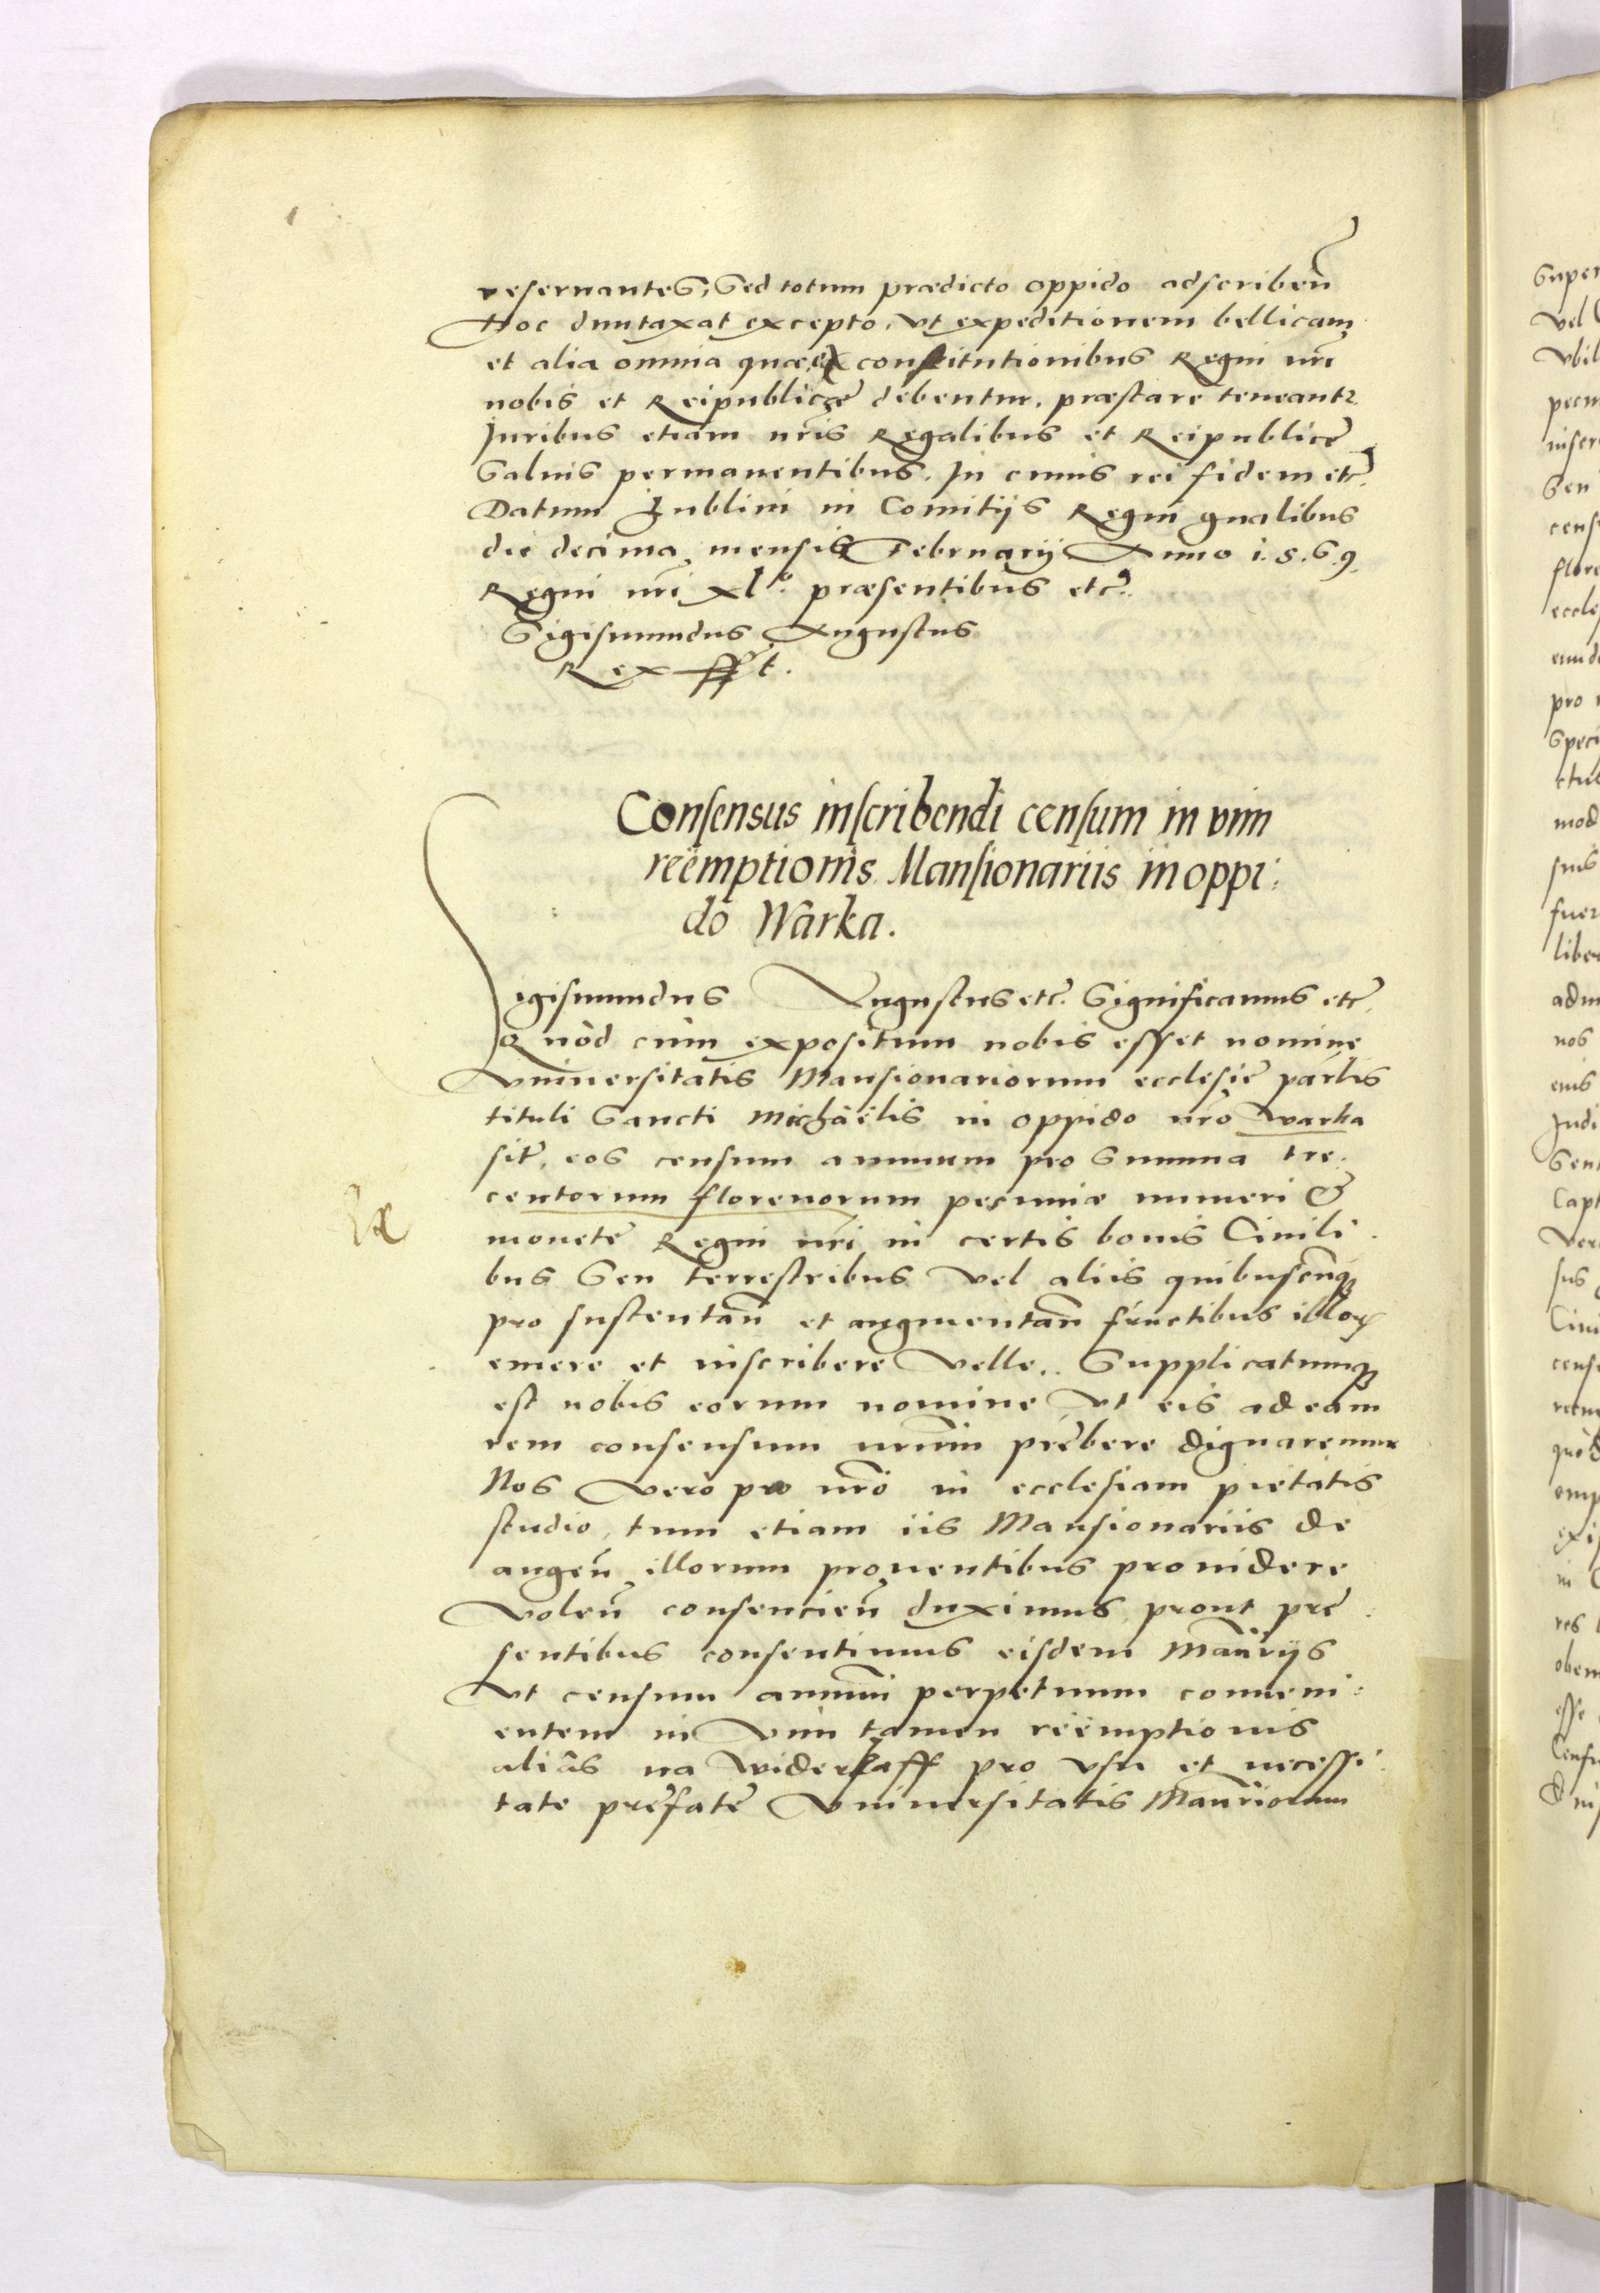 reseruantes, Sed totum prædicto oppido adscriben̄
Hoc duntaxat excepto, vt expeditionem bellicam
et alia omnia quæ ex constitutionibus Regni nr̄i
nobis et Reipublicæ debentur, præstare teneantr
Juribus etiam nr̄is Regalibus et Reipublicę
Saluis permanentibus. In cuius rei fidem etc̄.
Datum Lublini in Comitijs Regni gn̄alibus
die decima mensis Februarij Anno 1.5.6.9.
Regni nr̄i xlo. præsentibus etc̄.
Sigismundus Augustus
Rex sst.
Consensus inscribendi censum in vim
reëmptionis Mansionariis in oppi:
do Warka.
Sigismundus Augustus etc̄. Significamus etc̄.
Quòd cùm expositum nobis esset nomine
Vniuersitatis Mansionariorum ecclesię par̄lis
tituli Sancti Michaëlis in oppido nr̄o Warka
sitę, eos censum annuum pro Summa tre:
centorum florenorum pecuniæ numeri &
monetę Regni nr̄i in certis bonis Ciuili:
bus Seu terrestribus vel aliis quibuscūnq
pro sustentan̄ et augmentan̄ fructibus illor
emere et inscribere velle. Supplicatumq
est nobis eorum nomine vt eis ad eam
rem consensum nr̄um prębere dignaremur
Nos verò pro nr̄o in ecclesiam pietatis
studio, tum etiam iis Mansionariis de
augen̄ illorum prouentibus prouidere
volen̄ consencien̄ duximus, prout prę:
sentibus consentimus eisdem Man̄rijs
vt censum annuum perpetuum conueni:
entem in vim tamen reëmptionis
aliâs na widerkaff pro vsu et necessi:
tate pręfatę Vniuersitatis Man̄riorum